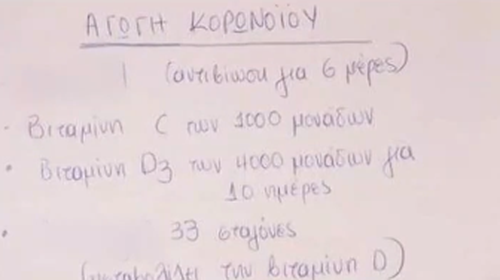 ΑΓΩΓΗ ΚΟΡΩΝΟΪΟΥ
(αντιβίωση για 6 μέρες)
- Βιταμίνη C των 1000 μονάδων
• Βιταμίνη D3 των 4000 μονάδων για
10 ημέρες
• 33 σταγόνες
την βιταμίνη D)